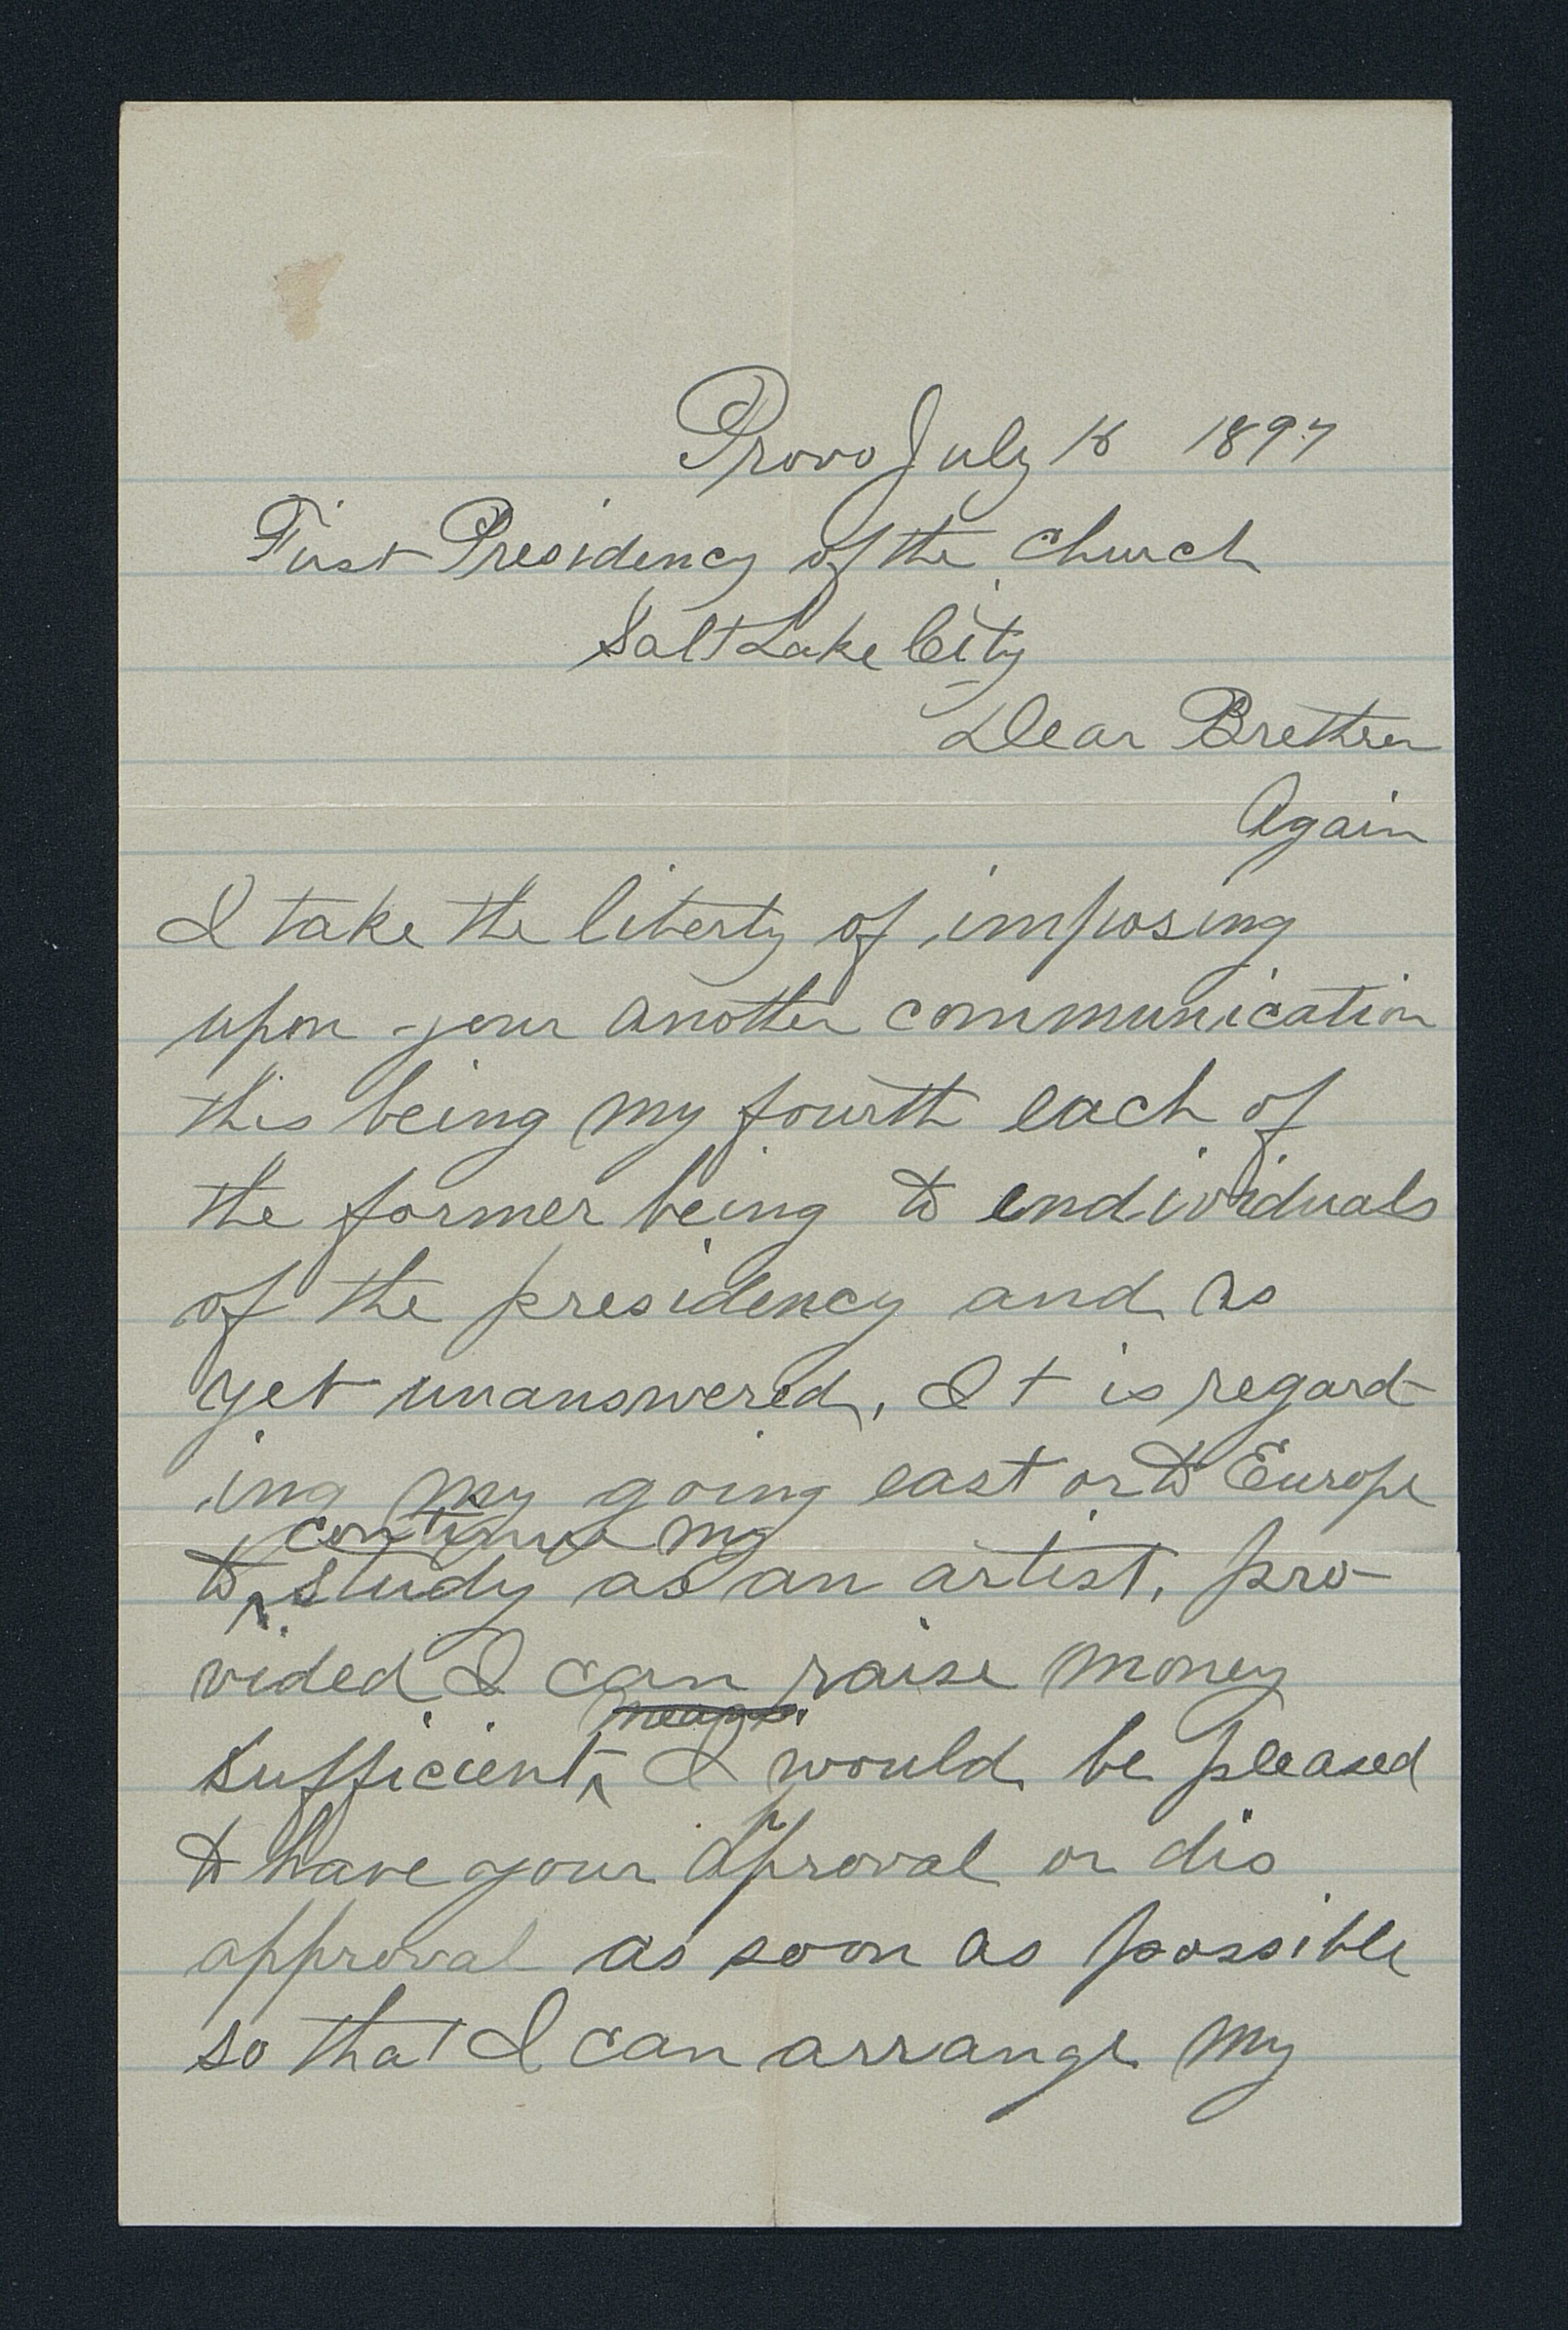 Provo July 18 1897
First Presidency of the Church
Salt Lake City
Dear Brethren
Again
I take the liberty of imposing
upon your another communication
this being my fourth each of
the former being to individuals
of the presidency and as
yet unanswered, It is regard-
ing my going east or to Europe
continue my
to ^ study as an artist, pro-
vided I can raise money
means.
sufficient ^ I would be pleased
to have your approval or dis
approval as soon as possible
so that I can arrange my